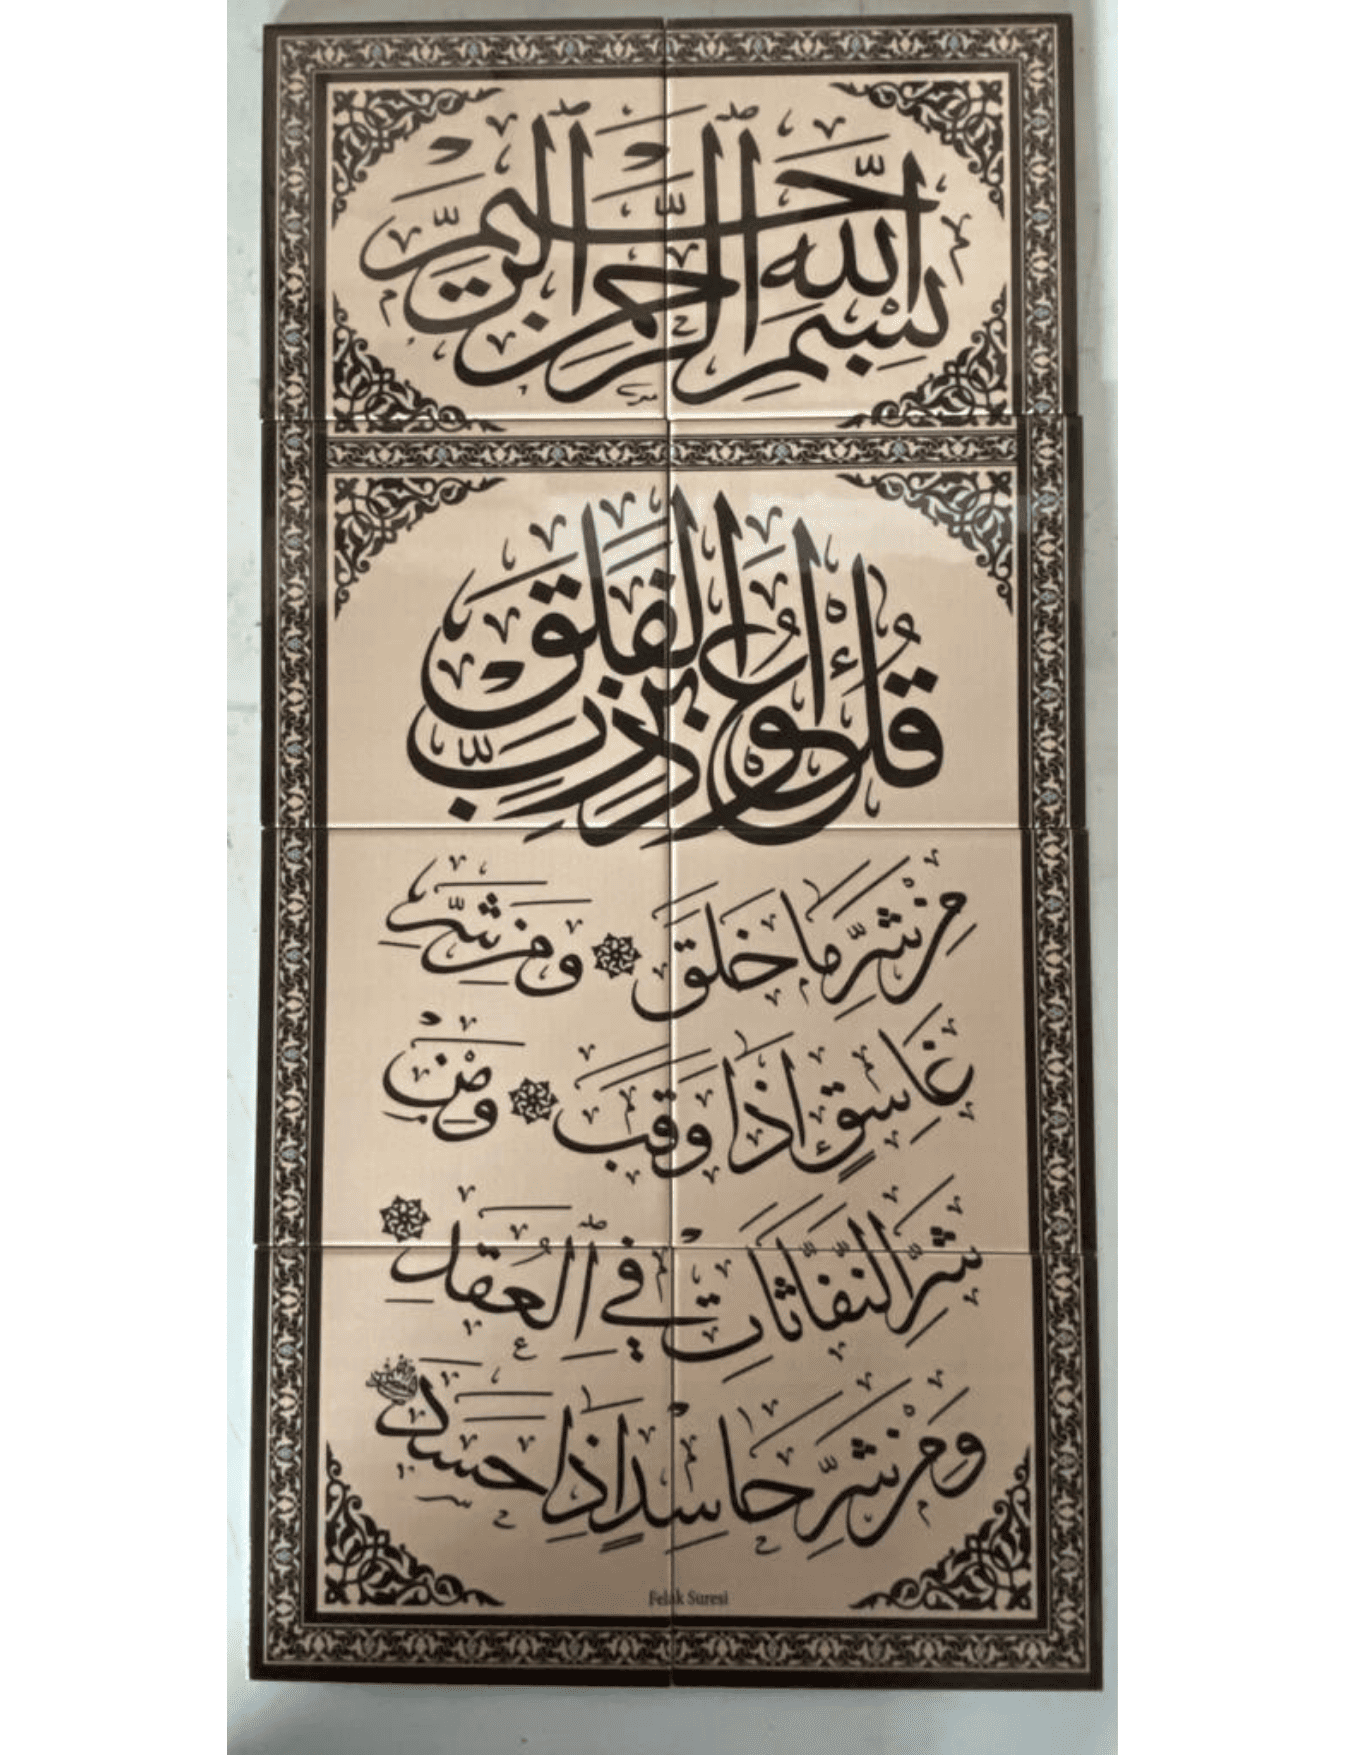 بِسْمِ اللهِ الرَّحْمٰنِ الرَّحِيمِ
قُلْ أَعُوذُ بِرَبِّ الْفَلَقِ
مِنْ شَرِّ مَا خَلَقَ ۞ وَمِنْ شَرِّ
غَاسِقٍ اِذَا وَقَبَ ۞ وَمِنْ
شَرِّ النَّفَّاثَاتِ فِي الْعُقَدِ ۞
وَمِنْ شَرِّ حَاسِدٍ اِذَا حَسَدَ
Felak Suresi